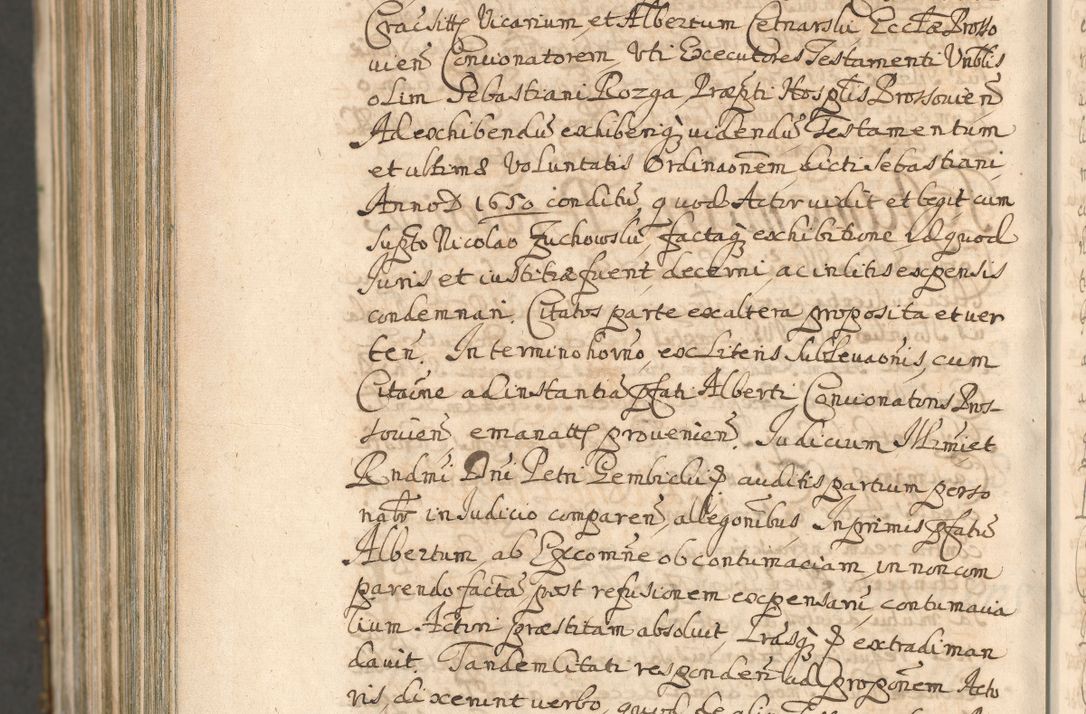 Cracsitt Vicarium et Albertum Cetnarski Ecctæ Brosso
uien Concionatorem, Vti Executores Testamenti Vnblis
olim Sebastiani Rozga Præpti Hosptlis Brossouien
Ad exhibendū exhiberiq uidendū Testamentum
et ultimæ Voluntatis Ordinaonem dicti Sebastiani
Anno D 1650 conditū, quod Actor uidit et legit cum
Suprto Nicolao Zuchowski, factaq exhibitione id quod
Iuris et iustitiæ fuerit decerni, ac in litis expensis
condemnari. Citatos parte ex altera proposita et uer
ten. In termino horno ex Literis Subleuaonis, cum
Citaōne ad instantiā pfati Alberti Concionatoris Bros-
souien emanatt prouenien. Iudicium Illrmi et
Rndmi Dni Petri Gembicki &c auditis partium perso
nalr in Iudicio comparen, allegonibus Inprimis pfatū
Albertum ab Excomne ob contumaciam, in non com
parendo factā post refusionem expensarū contumacia
lium Actori præstitam absoluit, Lrasq &c extradi man
dauit. Tandem Citati responden ad proponem Acto
ris, dixerunt uerbo, quod de alio